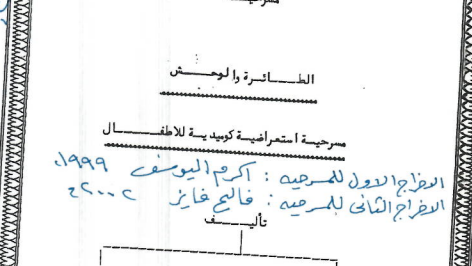 مسرحية
الطائرة والوحش
مسرحية استعراضية كوميدية للاطفال
الاخراج الاول للمسرحيه : اكرم اليوسف ١٩٩٩
الاخراج الثاني للمسرحيه : فالح فايز ٢٠٠٢
تأليف